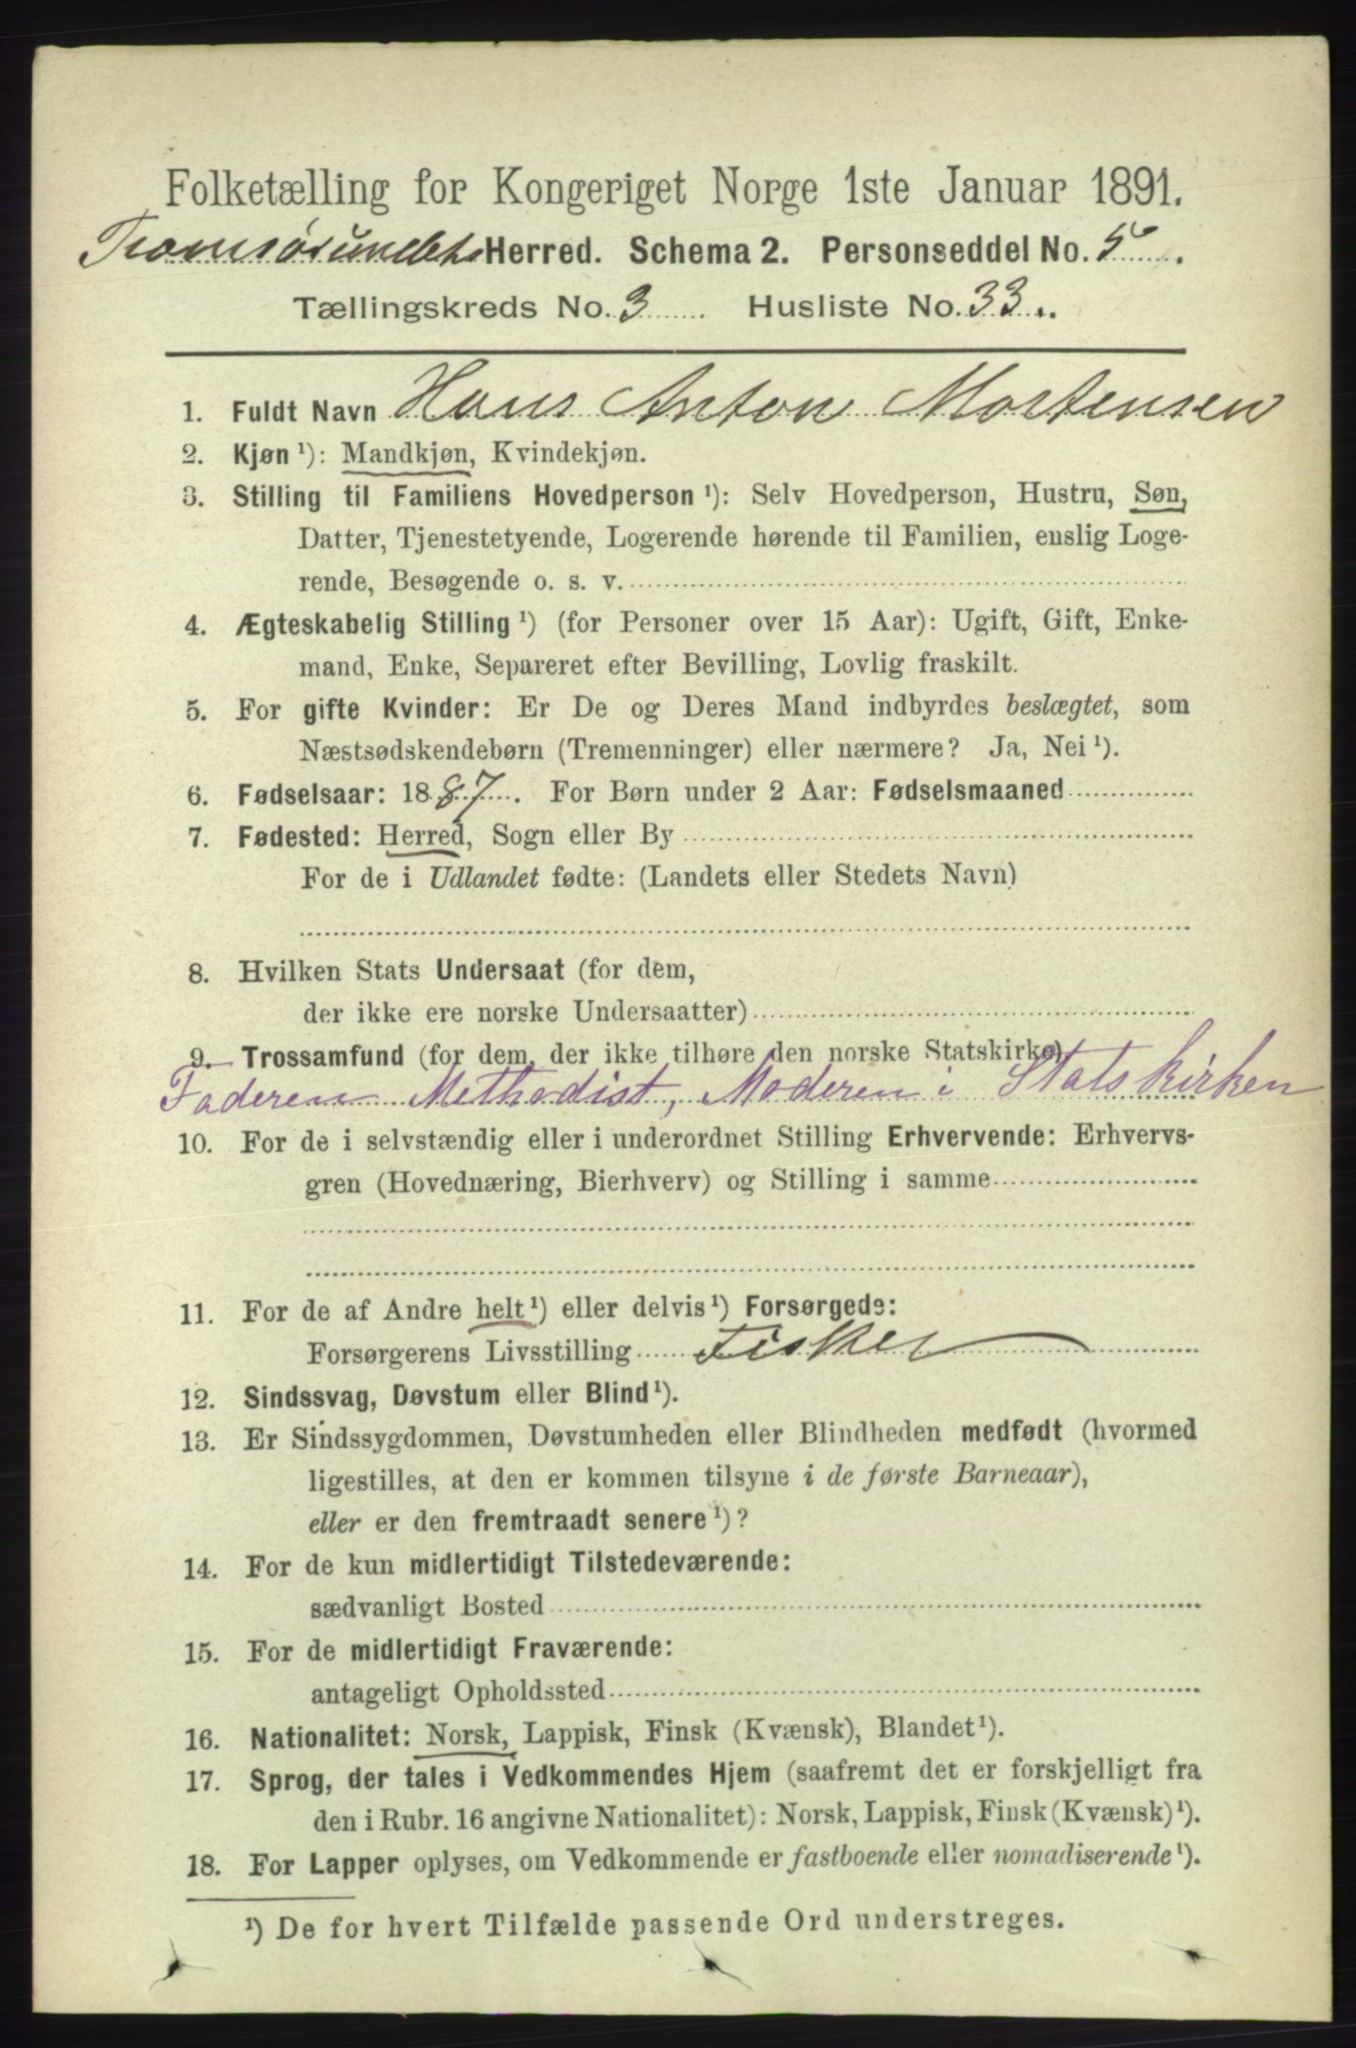 Folketælling for Kongeriget Norge 1ste Januar 1891.
Tromsøsundets Herred. Schema 2. Personseddel No. 5.
Tællingskreds No. 3 Husliste No. 33.
1. Fuldt Navn Hans Anton Mortensen
2. Kjøn ¹): Mandkjøn, Kvindekjøn.
3. Stilling til Familiens Hovedperson ¹): Selv Hovedperson, Hustru, Søn,
Datter, Tjenestetyende, Logerende hørende til Familien, enslig Loge-
rende, Besøgende o. s. v.
4. Ægteskabelig Stilling ¹) (for Personer over 15 Aar): Ugift, Gift, Enke-
mand, Enke, Separeret efter Bevilling, Lovlig fraskilt.
5. For gifte Kvinder: Er De og Deres Mand indbyrdes beslægtet, som
Næstsødskendebørn (Tremenninger) eller nærmere? Ja, Nei ¹).
6. Fødselsaar: 1887. For Børn under 2 Aar: Fødselsmaaned
7. Fødested: Herred, Sogn eller By
For de i Udlandet fødte: (Landets eller Stedets Navn)
8. Hvilken Stats Undersaat (for dem,
der ikke ere norske Undersaatter)
9. Trossamfund (for dem, der ikke tilhøre den norske Statskirke)
Faderen Methodist, Moderen i Statskirken
10. For de i selvstændig eller i underordnet Stilling Erhvervende: Erhvervs-
gren (Hovednæring, Bierhverv) og Stilling i samme
11. For de af Andre helt ¹) eller delvis ¹) Forsørgede:
Forsørgerens Livsstilling Fisker
12. Sindssvag, Døvstum eller Blind ¹).
13. Er Sindssygdommen, Døvstumheden eller Blindheden medfødt (hvormed
ligestilles, at den er kommen tilsyne i de første Barneaar),
eller er den fremtraadt senere ¹)?
14. For de kun midlertidigt Tilstedeværende:
sædvanligt Bosted
15. For de midlertidigt Fraværende:
antageligt Opholdssted
16. Nationalitet: Norsk, Lappisk, Finsk (Kvænsk), Blandet ¹).
17. Sprog, der tales i Vedkommendes Hjem (saafremt det er forskjelligt fra
den i Rubr. 16 angivne Nationalitet): Norsk, Lappisk, Finsk (Kvænsk) ¹).
18. For Lapper oplyses, om Vedkommende er fastboende eller nomadiserende ¹).
¹) De for hvert Tilfælde passende Ord understreges.